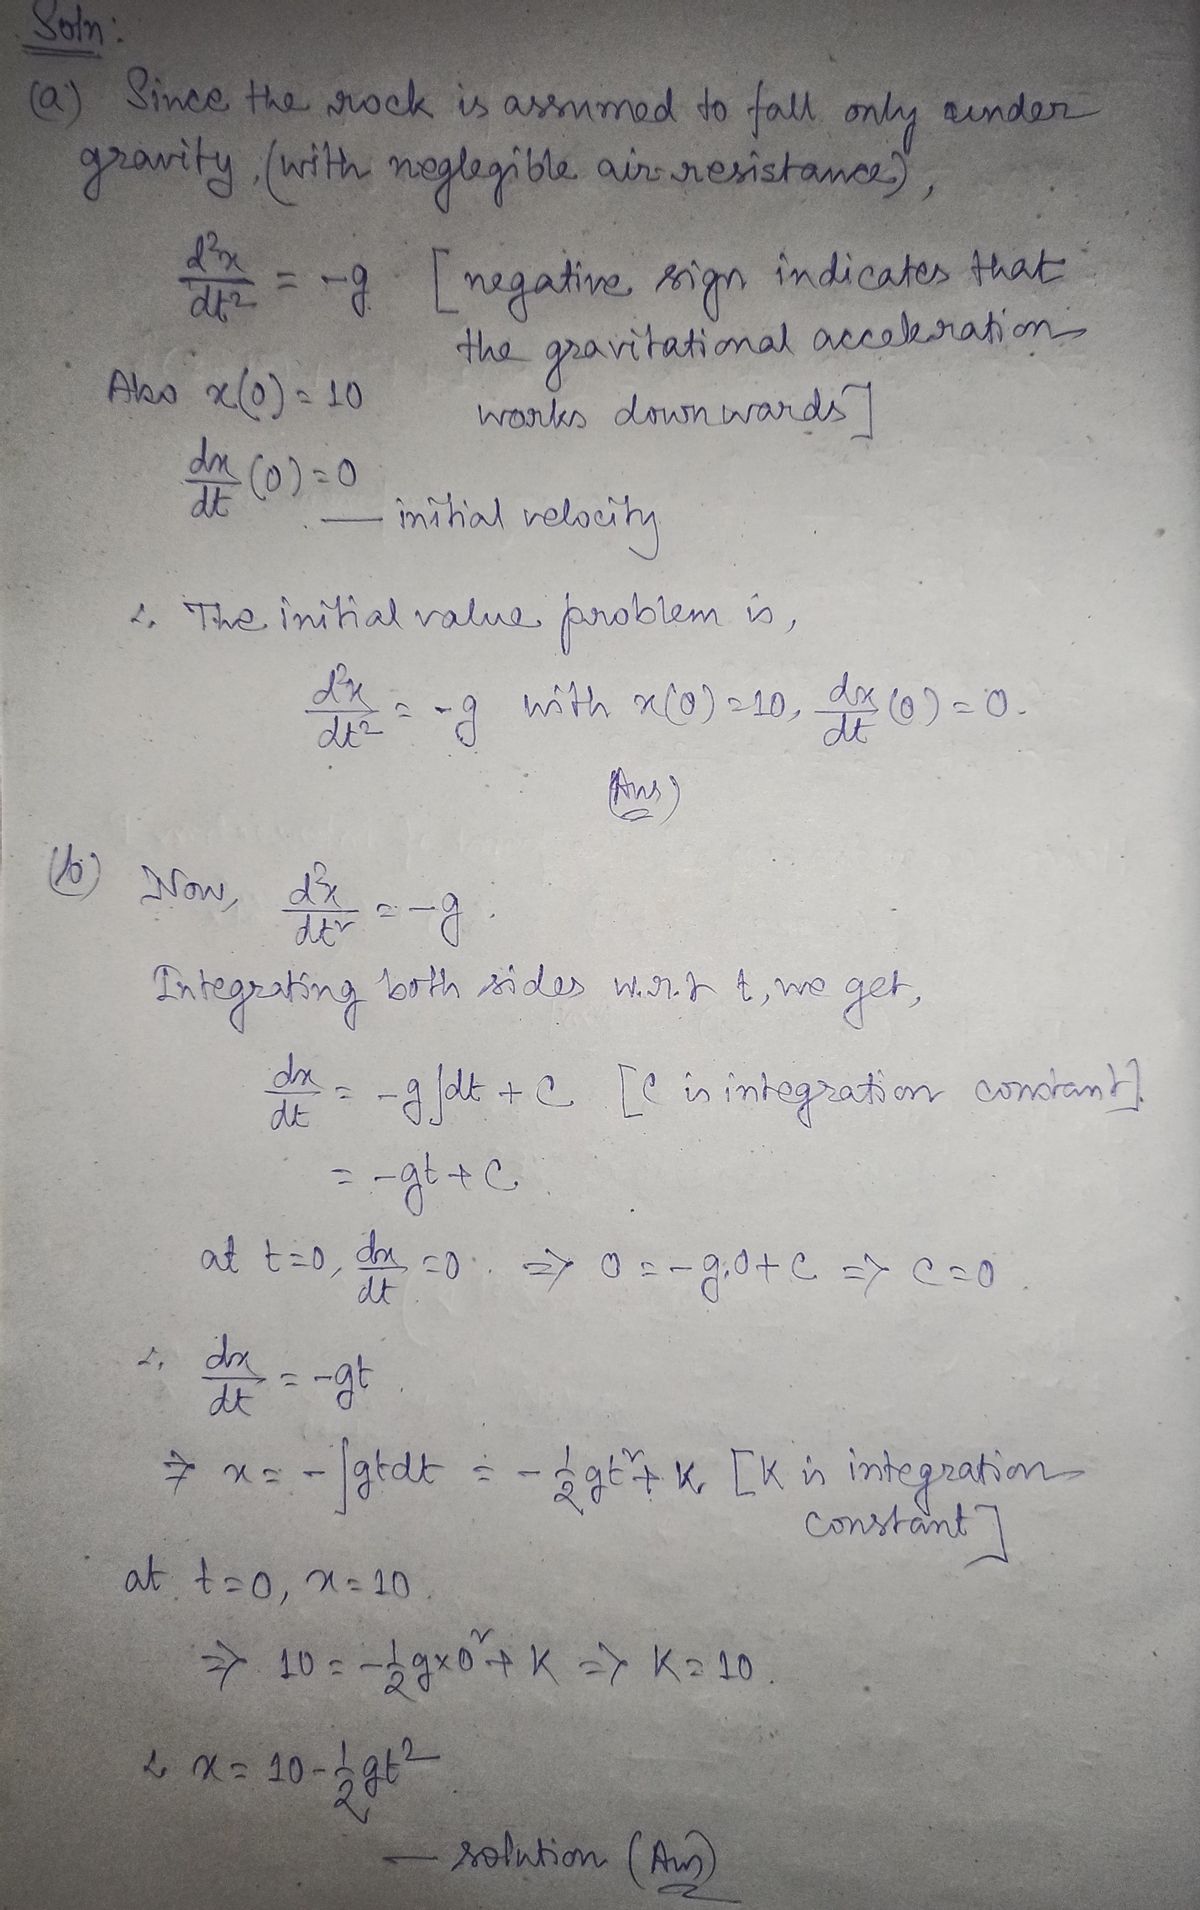 Soln:
(a) Since the rock is assumed to fall only under
gravity, (with neglegible air-resistance),
d²x/dt² = -g [negative sign indicates that
the gravitational acceleration
Also x(0) = 10 works downwards]
dx/dt (0) = 0
— initial velocity
∴ The initial value problem is,
d²x/dt² = -g with x(0) = 10, dx/dt (0) = 0.
(Ans)
(b) Now, d²x/dt² = -g.
Integrating both sides w.r.t t, we get,
dx/dt = -g∫dt + C [C is integration constant].
= -gt + C.
at t=0, dx/dt = 0. ⇒ 0 = -g.0 + C ⇒ C = 0.
∴ dx/dt = -gt.
⇒ x = -∫gtdt = -½gt² + K [K is integration
constant]
at t=0, x=10.
⇒ 10 = -½g×0² + K ⇒ K = 10.
∴ x = 10 - ½gt².
— solution (Ans)